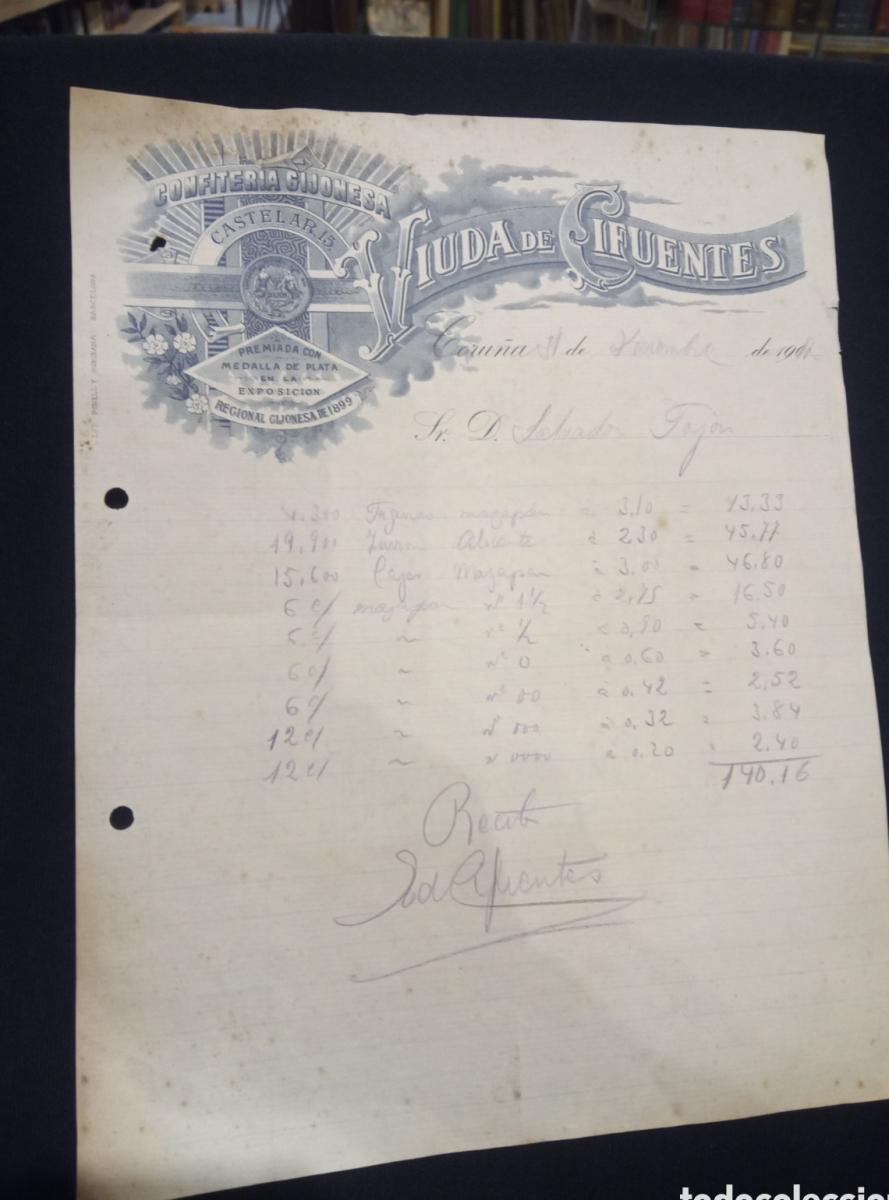 CONFITERIA GIJONESA
CASTELAR, 15
VIUDA DE CIFUENTES
PREMIADA CON
MEDALLA DE PLATA
EN LA
EXPOSICION
REGIONAL GIJONESA DE 1899
Coruña 31 de de 190
Sr. D. Salvador Fojón
4.300 Figuras mazapan a 3,10 = 13.33
19,900 Alicante à 2.30 = 45.77
15,600 Cajas Mazapan à 3,00 = 46.80
6 c/ mazapan nº 1 1/2 à 2,75 = 16,50
6 c/ ~ nº 1/2 à 0,90 = 5,40
6 c/ ~ nº 0 a 0.60 = 3.60
6 c/ ~ nº 00 à 0.42 = 2,52
12 c/ ~ nº 000 a 0,32 = 3.84
12 c/ ~ nº 0000 a 0.20 = 2.40
140,16
Recibi
Cifuentes
todocoleccion